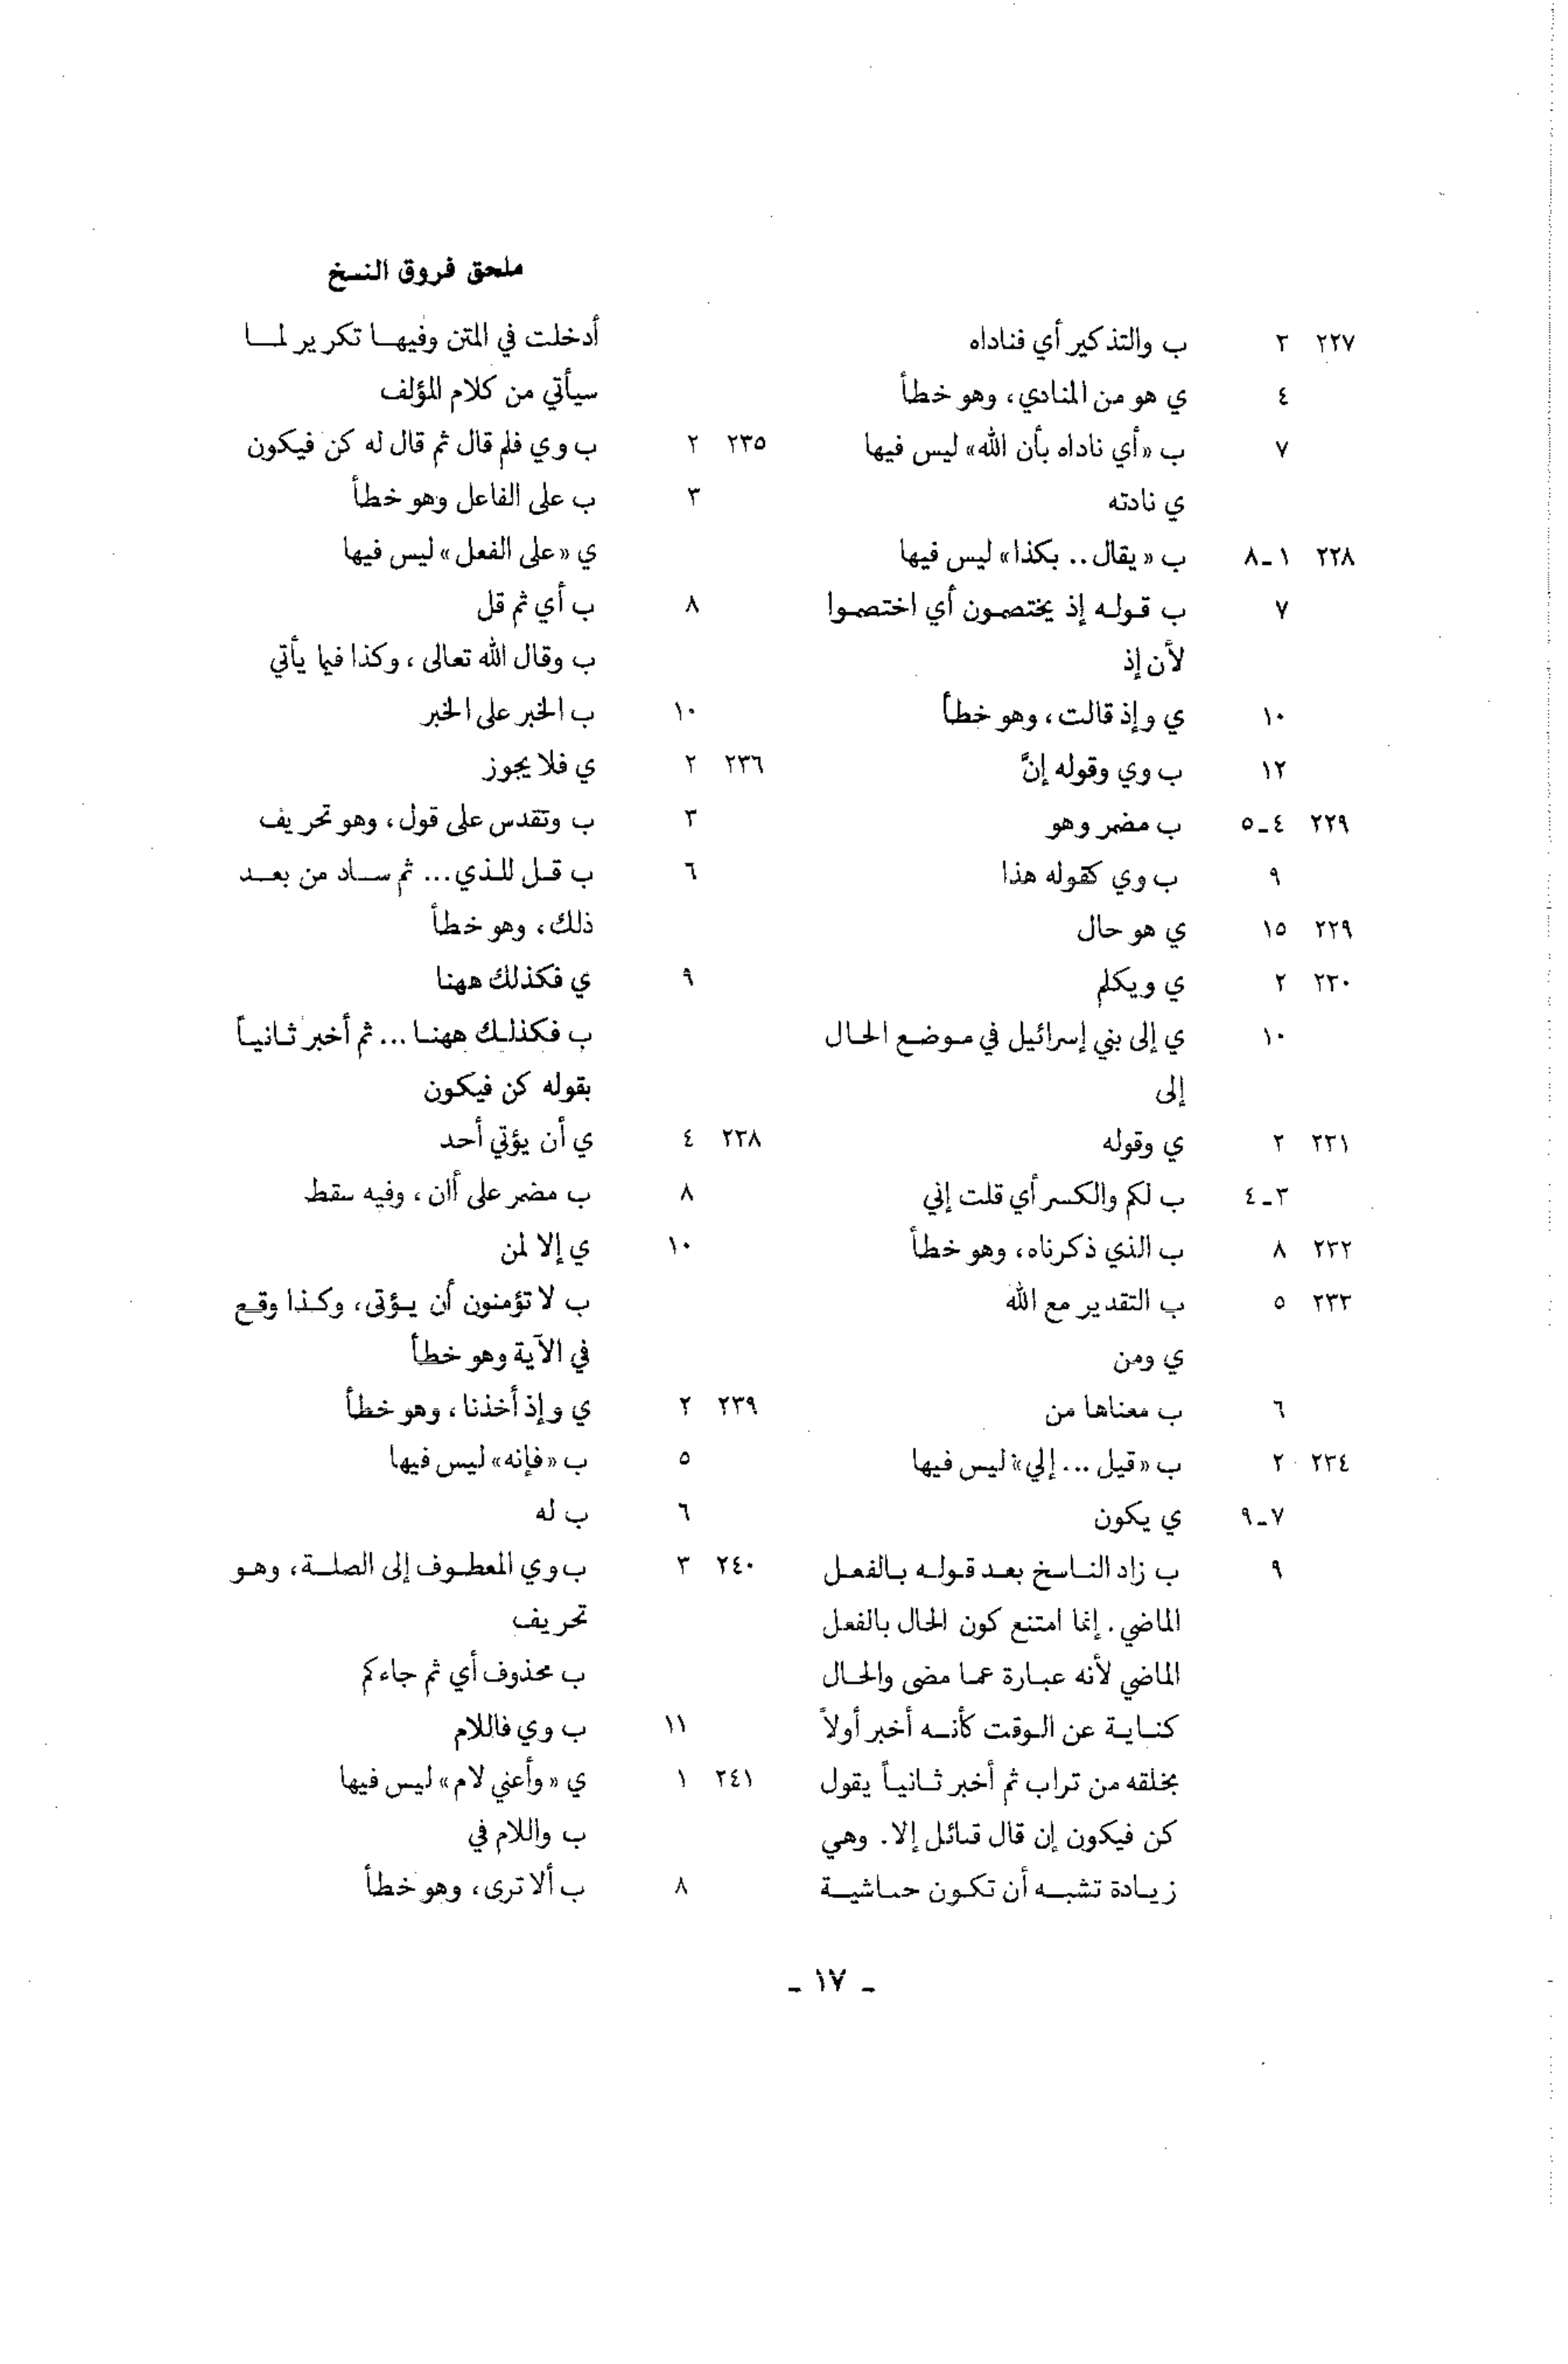 ملحق فروق النسخ
٢٢٧ ٢ ب والتذكير أي فناداه
٤ ي هو من المنادي، وهو خطأ
٧ ب «أي ناداه بأن الله» ليس فيها
ي نادته
٢٢٨ ١-٨ ب «يقال.. بكذا» ليس فيها
٧ ب قوله إذ يختصون أي اختصوا
لأن إذ
١٠ ي وإذ قالت، وهو خطأ
١٢ ب وي وقوله إنَّ
٢٢٩ ٤-٥ ب مضمر وهو
٩ ب وي كقوله هذا
٢٢٩ ١٥ ي هو حال
٢٣٠ ٢ ي ويكلم
١٠ ي إلى بني إسرائيل في موضع الحال
إلى
٢٣١ ٢ ي وقوله
٣-٤ ب لكم والكسر أي قلت إني
٢٣٢ ٨ ب الذي ذكرناه، وهو خطأ
٢٣٣ ٥ ب التقدير مع الله
ي ومن
٦ ب معناها من
٢٣٤ ٢ ب «قيل ... إلي» ليس فيها
٧-٩ ي يكون
٩ ب زاد الناسخ بعد قوله بالفعل
الماضي. إنما امتنع كون الحال بالفعل
الماضي لأنه عبارة عما مضى والحال
كناية عن الوقت كأنه أخبر أولاً
بخلقه من تراب ثم أخبر ثانياً يقول
كن فيكون إن قال قائل إلا. وهي
زيادة تشبه أن تكون حاشية
أدخلت في المتن وفيها تكرير لما
سيأتي من كلام المؤلف
٢٣٥ ٢ ب وي فلم قال ثم قال له كن فيكون
٣ ب على الفاعل وهو خطأ
ي «على الفعل» ليس فيها
٨ ب أي ثم قل
ب وقال الله تعالى، وكذا فيما يأتي
١٠ ب الخبر على الخبر
٢٣٦ ٢ ي فلا يجوز
٣ ب وتقدس على قول، وهو تحريف
٦ ب قل للذي... ثم ساد من بعد
ذلك، وهو خطأ
٩ ي فكذلك ههنا
ب فكذلك ههنا ... ثم أخبر ثانياً
بقوله كن فيكون
٢٣٨ ٤ ي أن يؤتي أحد
٨ ب مضمر على أان، وفيه سقط
١٠ ي إلا لمن
ب لا تؤمنون أن يؤتى، وكذا وقع
في الآية وهو خطأ
٢٣٩ ٢ ي وإذ أخذنا، وهو خطأ
٥ ب «فإنه» ليس فيها
٦ ب له
٢٤٠ ٣ ب وي المعطوف إلى الصلة، وهو
تحريف
ب محذوف أي ثم جاءكم
١١ ب وي فاللام
٢٤١ ١ ي «وأعني لام» ليس فيها
ب واللام في
٨ ب ألا ترى، وهو خطأ
- ١٧ -